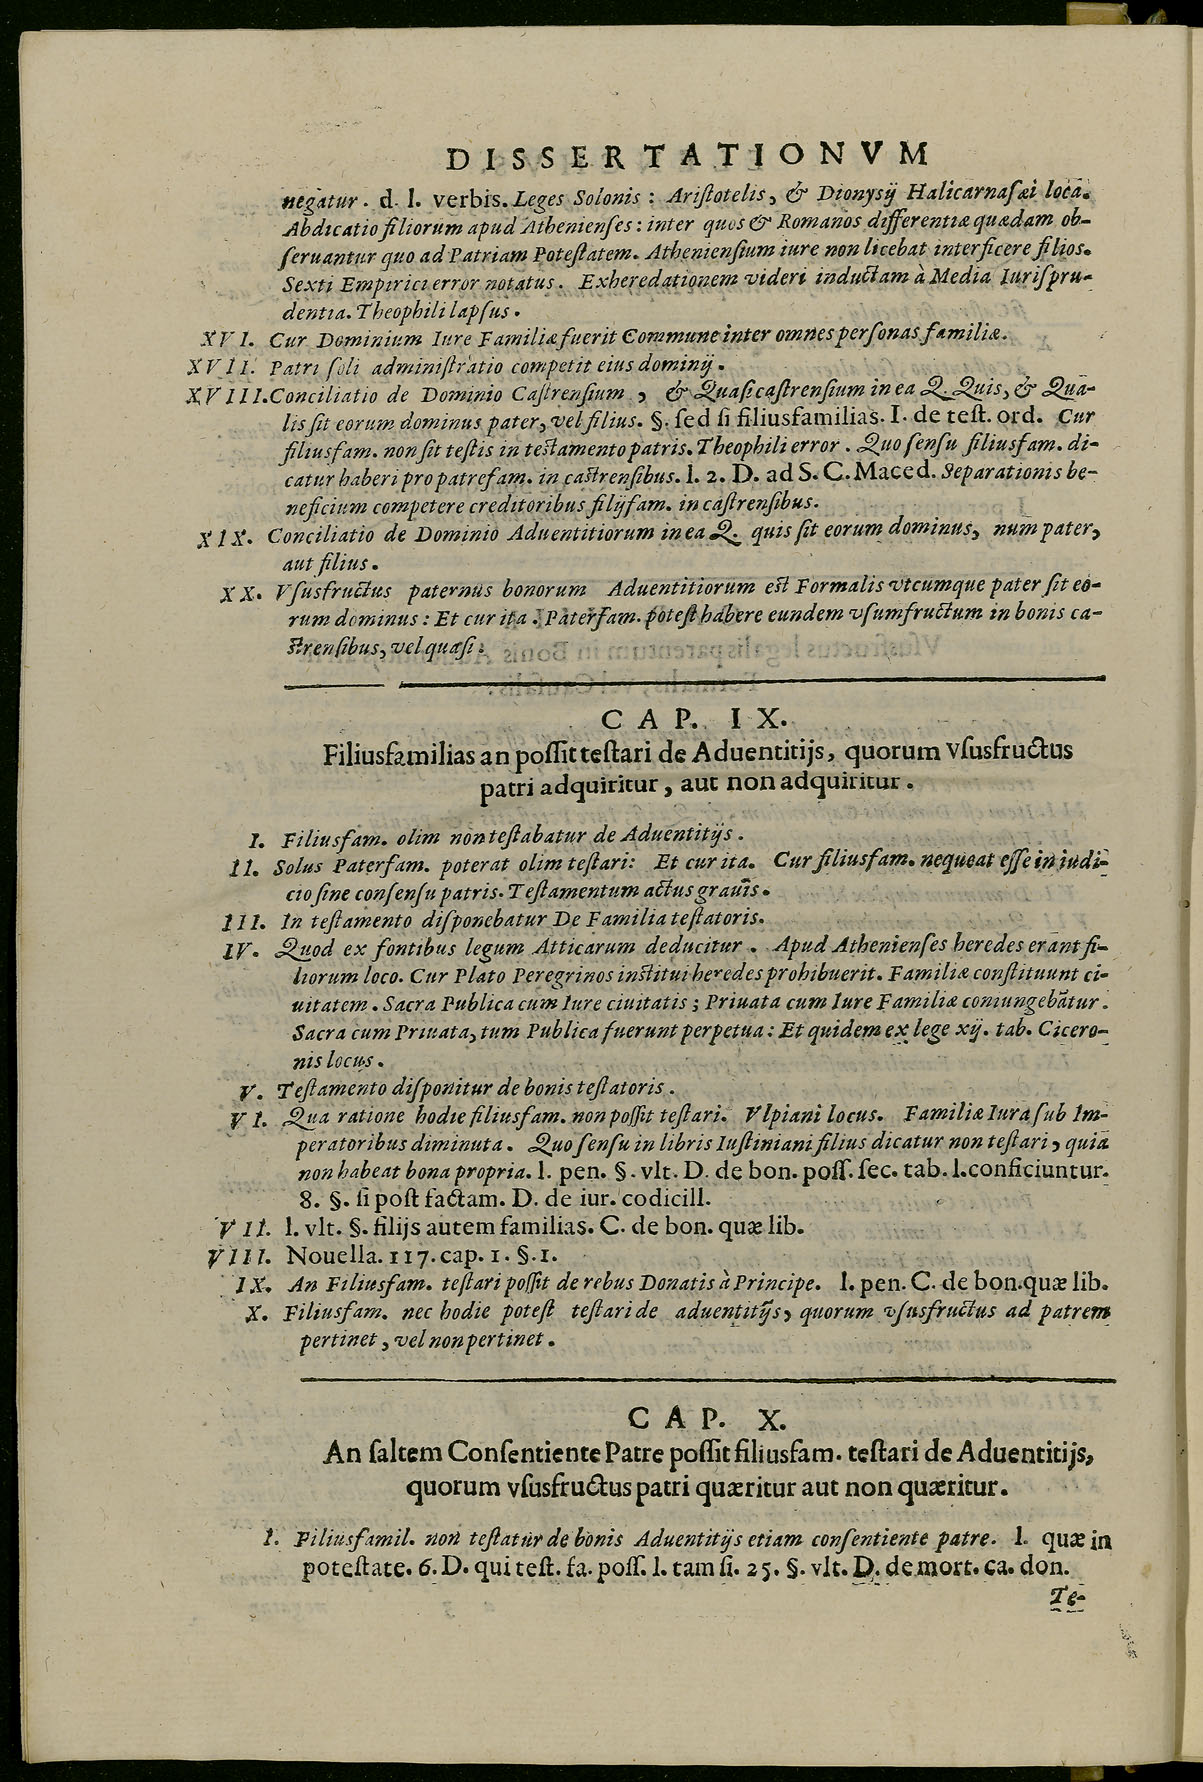 DISSERTATIONVM
negatur. d. l. verbis. Leges Solonis: Ariſtotelis, & Dionysij Halicarnaſæi loca.
Abdicatio filiorum apud Athenienſes: inter quos & Romanos differentiæ quædam ob-
ſeruantur quo ad Patriam Poteſtatem. Athenienſium iure non licebat interficere filios.
Sexti Empirici error notatus. Exheredationem videri inductam à Media Iuriſpru-
dentia. Theophili lapſus.
XVI. Cur Dominium Iure Familiæ fuerit Commune inter omnes perſonas familiæ.
XVII. Patri ſoli adminiſtratio competit eius dominij.
XVIII. Conciliatio de Dominio Caſtrenſium, & Quaſicaſtrenſium in ea Q. Quis, & Qua-
lis ſit eorum dominus pater, vel filius. §. ſed ſi filiusfamilias. I. de teſt. ord. Cur
filiusfam. non ſit teſtis in teſtamento patris. Theophili error. Quo ſenſu filiusfam. di-
catur haberi pro patrefam. in caſtrenſibus. l. 2. D. ad S. C. Maced. Separationis be-
neficium competere creditoribus filijfam. in caſtrenſibus.
XIX. Conciliatio de Dominio Aduentitiorum in ea Q. quis ſit eorum dominus, num pater,
aut filius.
XX. Vſusfructus paternus bonorum Aduentitiorum eſt Formalis vtcumque pater ſit eo-
rum dominus: Et cur ita. Paterfam. poteſt habere eundem vſumfructum in bonis ca-
ſtrenſibus, vel quaſi.
CAP. IX.
Filiusfamilias an poſſit teſtari de Aduentitijs, quorum vſusfructus
patri adquiritur, aut non adquiritur.
I. Filiusfam. olim non teſtabatur de Aduentitijs.
II. Solus Paterfam. poterat olim teſtari: Et cur ita. Cur filiusfam. nequeat eſſe in iudi-
cio ſine conſenſu patris. Teſtamentum actus grauis.
III. In teſtamento diſponebatur De Familia teſtatoris.
IV. Quod ex fontibus legum Atticarum deducitur. Apud Athenienſes heredes erant fi-
liorum loco. Cur Plato Peregrinos inſtitui heredes prohibuerit. Familiæ conſtituunt ci-
uitatem. Sacra Publica cum Iure ciuitatis; Priuata cum Iure Familiæ coniungebātur.
Sacra cum Priuata, tum Publica fuerunt perpetua: Et quidem ex lege xij. tab. Cicero-
nis locus.
V. Teſtamento diſponitur de bonis teſtatoris.
VI. Qua ratione hodie filiusfam. non poſſit teſtari. Vlpiani locus. Familiæ Iura ſub Im-
peratoribus diminuta. Quo ſenſu in libris Iuſtiniani filius dicatur non teſtari, quia
non habeat bona propria. l. pen. §. vlt. D. de bon. poſſ. ſec. tab. l. conficiuntur.
8. §. ſi poſt factam. D. de iur. codicill.
VII. l. vlt. §. filijs autem familias. C. de bon. quæ lib.
VIII. Nouella. 117. cap. 1. §. 1.
IX. An Filiusfam. teſtari poſſit de rebus Donatis à Principe. l. pen. C. de bon. quæ lib.
X. Filiusfam. nec hodie poteſt teſtari de aduentitijs, quorum vſusfructus ad patrem
pertinet, vel non pertinet.
CAP. X.
An ſaltem Conſentiente Patre poſſit filiusfam. teſtari de Aduentitijs,
quorum vſusfructus patri quæritur aut non quæritur.
I. Filiusfamil. non teſtatur de bonis Aduentitijs etiam conſentiente patre. l. quæ in
poteſtate. 6. D. qui teſt. fa. poſſ. l. tam ſi. 25. §. vlt. D. de mort. ca. don.
Te-